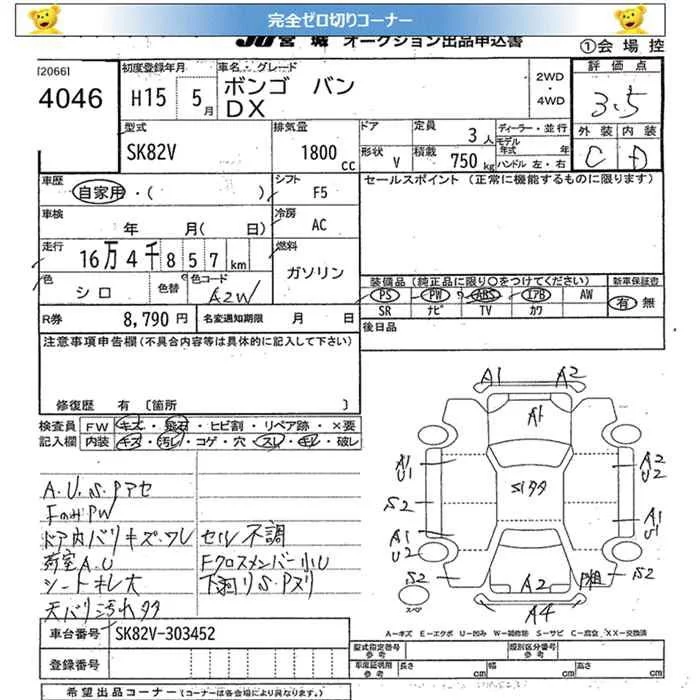 完全ゼロ切りコーナー
JU宮城 オークション出品申込書
①会場控
[2066]
4046
初度登録年月
H15 5月
車名・グレード
ボンゴ バン
DX
2WD
・
4WD
評価点
3.5
外装 内装
C D
型式
SK82V
排気量
1800cc
ドア
形状 V
定員 3人
積載 750kg
ディーラー・並行
モデル年式 年
ハンドル 左・右
車歴
自家用・( )
シフト
F5
セールスポイント (正常に機能するものに限ります)
車検
年 月( 日)
冷房
AC
走行
16万4千857km
燃料
ガソリン
色
シロ
色替
色コード
A2W
装備品 (純正品に限り○をつけてください)
PS PW ABS エアB AW
SR ナビ TV カワ
新車保証書
有 無
R券 8,790円
名変通知期限 月 日
後日品
注意事項申告欄 (不具合内容等は具体的に記入して下さい)
修復歴 有 〔箇所 〕
検査員記入欄
FW キズ・飛石・ヒビ割・リペア跡・×要
内装 キズ・汚レ・コゲ・穴・スレ・キレ・破レ
A.U.S.Pアセ
FのみPW
ドア内バリキズ・ワレ
荷室A.U
シートキレ大
天バリ汚れタタ
セル不調
Fクロスメンバー小U
下廻りS.Pヌリ
A1 A2
A1
A1
U1
A2
U2
S2
Sタタ
A1
U2
A1
U1
S2
A2
P粗
S2
A4
スペア
A=キズ E=エクボ U=凹み W=補修跡 S=サビ C=腐食 XX=交換済
車台番号 SK82V-303452
登録番号
型式指定番号
参考
類別区分番号
参考
車庫証明用
参考
長さ cm 幅 cm 高さ cm
希望出品コーナー (コーナーは各会場により異なります)